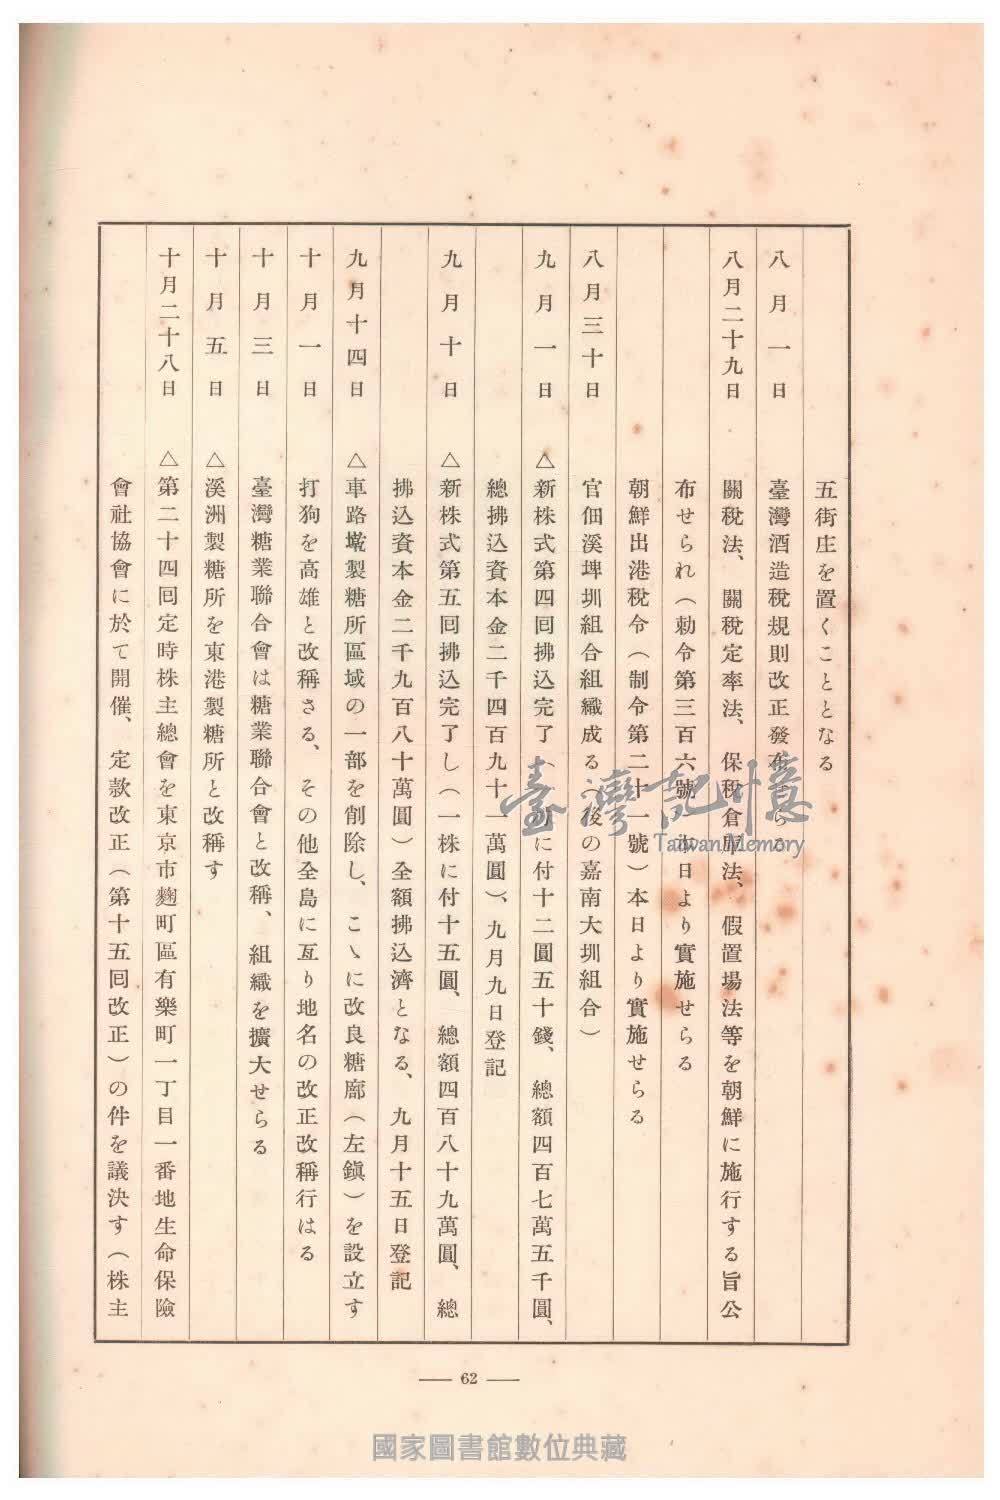 五街庄を置くこととなる
八月一日 臺灣酒造稅規則改正發布せらる
八月二十九日 關稅法、關稅定率法、保稅倉庫法、假置場法等を朝鮮に施行する旨公
布せられ(勅令第三百六號)本日より實施せらる
朝鮮出港稅令(制令第二十一號)本日より實施せらる
八月三十日 官佃溪埤圳組合組織成る(後の嘉南大圳組合)
九月一日 △新株式第四囘拂込完了(一株に付十二圓五十錢、總額四百七萬五千圓、
總拂込資本金二千四百九十一萬圓)、九月九日登記
九月十日 △新株式第五囘拂込完了し(一株に付十五圓、總額四百八十九萬圓、總
拂込資本金二千九百八十萬圓)全額拂込濟となる、九月十五日登記
九月十四日 △車路墘製糖所區域の一部を削除し、こゝに改良糖廍(左鎭)を設立す
十月一日 打狗を高雄と改稱さる、その他全島に亙り地名の改正改稱行はる
十月三日 臺灣糖業聯合會は糖業聯合會と改稱、組織を擴大せらる
十月五日 △溪洲製糖所を東港製糖所と改稱す
十月二十八日 △第二十四囘定時株主總會を東京市麴町區有樂町一丁目一番地生命保險
會社協會に於て開催、定款改正(第十五囘改正)の件を議決す(株主
— 62 —
臺灣記憶
Taiwan Memory
國家圖書館數位典藏